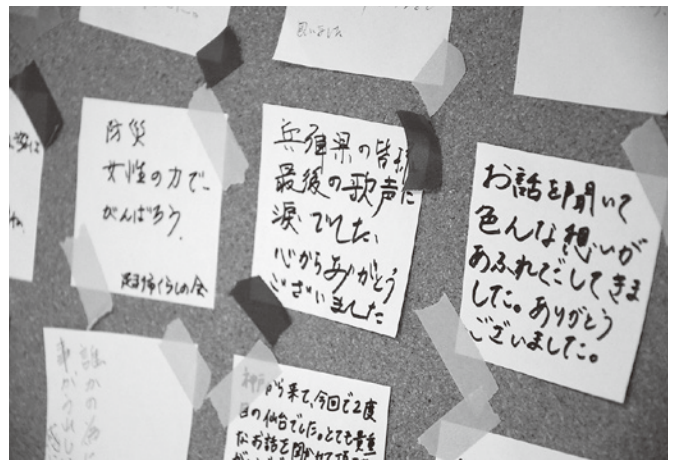 思いました
防災
女性の力で
がんばろう。
くらしの会
兵庫県の皆様
最後の歌声に
涙でした。
心からありがとう
ございました
お話を聞いて
色んな想いが
あふれてごしてきま
した。ありがとう
ございました。
誰かの為に
事がうれし
神戸から来て、今回で2度
目の仙台でした。とても貴重
なお話を聞かせて頂